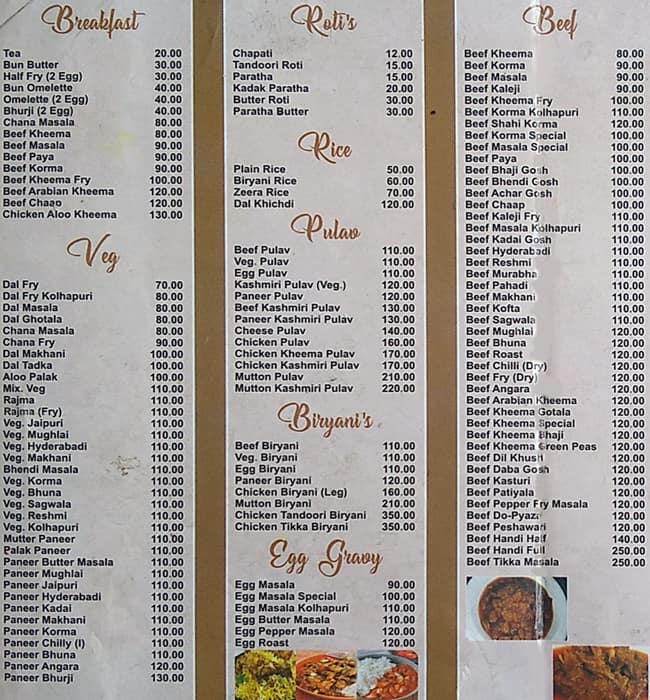 Breakfast
Tea 20.00
Bun Butter 30.00
Half Fry (2 Egg) 30.00
Bun Omelette 40.00
Omelette (2 Egg) 40.00
Bhurji (2 Egg) 40.00
Chana Masala 80.00
Beef Kheema 80.00
Beef Masala 90.00
Beef Paya 90.00
Beef Korma 90.00
Beef Kheema Fry 100.00
Beef Arabian Kheema 120.00
Beef Chaap 120.00
Chicken Aloo Kheema 130.00
Veg
Dal Fry 70.00
Dal Fry Kolhapuri 80.00
Dal Masala 80.00
Dal Ghotala 80.00
Chana Masala 80.00
Chana Fry 90.00
Dal Makhani 100.00
Dal Tadka 100.00
Aloo Palak 100.00
Mix. Veg 110.00
Rajma 110.00
Rajma (Fry) 110.00
Veg. Jaipuri 110.00
Veg. Mughlai 110.00
Veg. Hyderabadi 110.00
Veg. Makhani 110.00
Bhendi Masala 110.00
Veg. Korma 110.00
Veg. Bhuna 110.00
Veg. Sagwala 110.00
Veg. Reshmi 110.00
Veg. Kolhapuri 110.00
Mutter Paneer 110.00
Palak Paneer 110.00
Paneer Butter Masala 110.00
Paneer Mughlai 110.00
Paneer Jaipuri 110.00
Paneer Hyderabadi 110.00
Paneer Kadai 110.00
Paneer Makhani 110.00
Paneer Korma 110.00
Paneer Chilly (I) 110.00
Paneer Bhuna 110.00
Paneer Angara 120.00
Paneer Bhurji 130.00
Roti's
Chapati 12.00
Tandoori Roti 15.00
Paratha 15.00
Kadak Paratha 20.00
Butter Roti 30.00
Paratha Butter 30.00
Rice
Plain Rice 50.00
Biryani Rice 60.00
Zeera Rice 70.00
Dal Khichdi 120.00
Pulav
Beef Pulav 110.00
Veg. Pulav 110.00
Egg Pulav 110.00
Kashmiri Pulav (Veg.) 120.00
Paneer Pulav 120.00
Beef Kashmiri Pulav 130.00
Paneer Kashmiri Pulav 130.00
Cheese Pulav 140.00
Chicken Pulav 160.00
Chicken Kheema Pulav 170.00
Chicken Kashmiri Pulav 170.00
Mutton Pulav 210.00
Mutton Kashmiri Pulav 220.00
Biryani's
Beef Biryani 110.00
Veg. Biryani 110.00
Egg Biryani 110.00
Paneer Biryani 120.00
Chicken Biryani (Leg) 160.00
Mutton Biryani 210.00
Chicken Tandoori Biryani 350.00
Chicken Tikka Biryani 350.00
Egg Gravy
Egg Masala 90.00
Egg Masala Special 100.00
Egg Masala Kolhapuri 110.00
Egg Butter Masala 110.00
Egg Pepper Masala 120.00
Egg Roast 120.00
Beef
Beef Kheema 80.00
Beef Korma 90.00
Beef Masala 90.00
Beef Kaleji 90.00
Beef Kheema Fry 100.00
Beef Korma Kolhapuri 110.00
Beef Shahi Korma 120.00
Beef Korma Special 100.00
Beef Masala Special 100.00
Beef Paya 100.00
Beef Bhaji Gosh 100.00
Beef Bhendi Gosh 100.00
Beef Achar Gosh 100.00
Beef Chaap 100.00
Beef Kaleji Fry 110.00
Beef Masala Kolhapuri 110.00
Beef Kadai Gosh 110.00
Beef Hyderabadi 110.00
Beef Reshmi 110.00
Beef Murabha 110.00
Beef Pahadi 110.00
Beef Makhani 110.00
Beef Kofta 110.00
Beef Sagwala 110.00
Beef Mughlai 120.00
Beef Bhuna 120.00
Beef Roast 120.00
Beef Chilli (Dry) 120.00
Beef Fry (Dry) 120.00
Beef Angara 120.00
Beef Arabian Kheema 120.00
Beef Kheema Gotala 120.00
Beef Kheema Special 120.00
Beef Kheema Bhaji 120.00
Beef Kheema Green Peas 120.00
Beef Dil Khush 120.00
Beef Daba Gosh 120.00
Beef Kasturi 120.00
Beef Patiyala 120.00
Beef Pepper Fry Masala 120.00
Beef Do-Pyaza 120.00
Beef Peshawari 120.00
Beef Handi Half 140.00
Beef Handi Full 250.00
Beef Tikka Masala 250.00